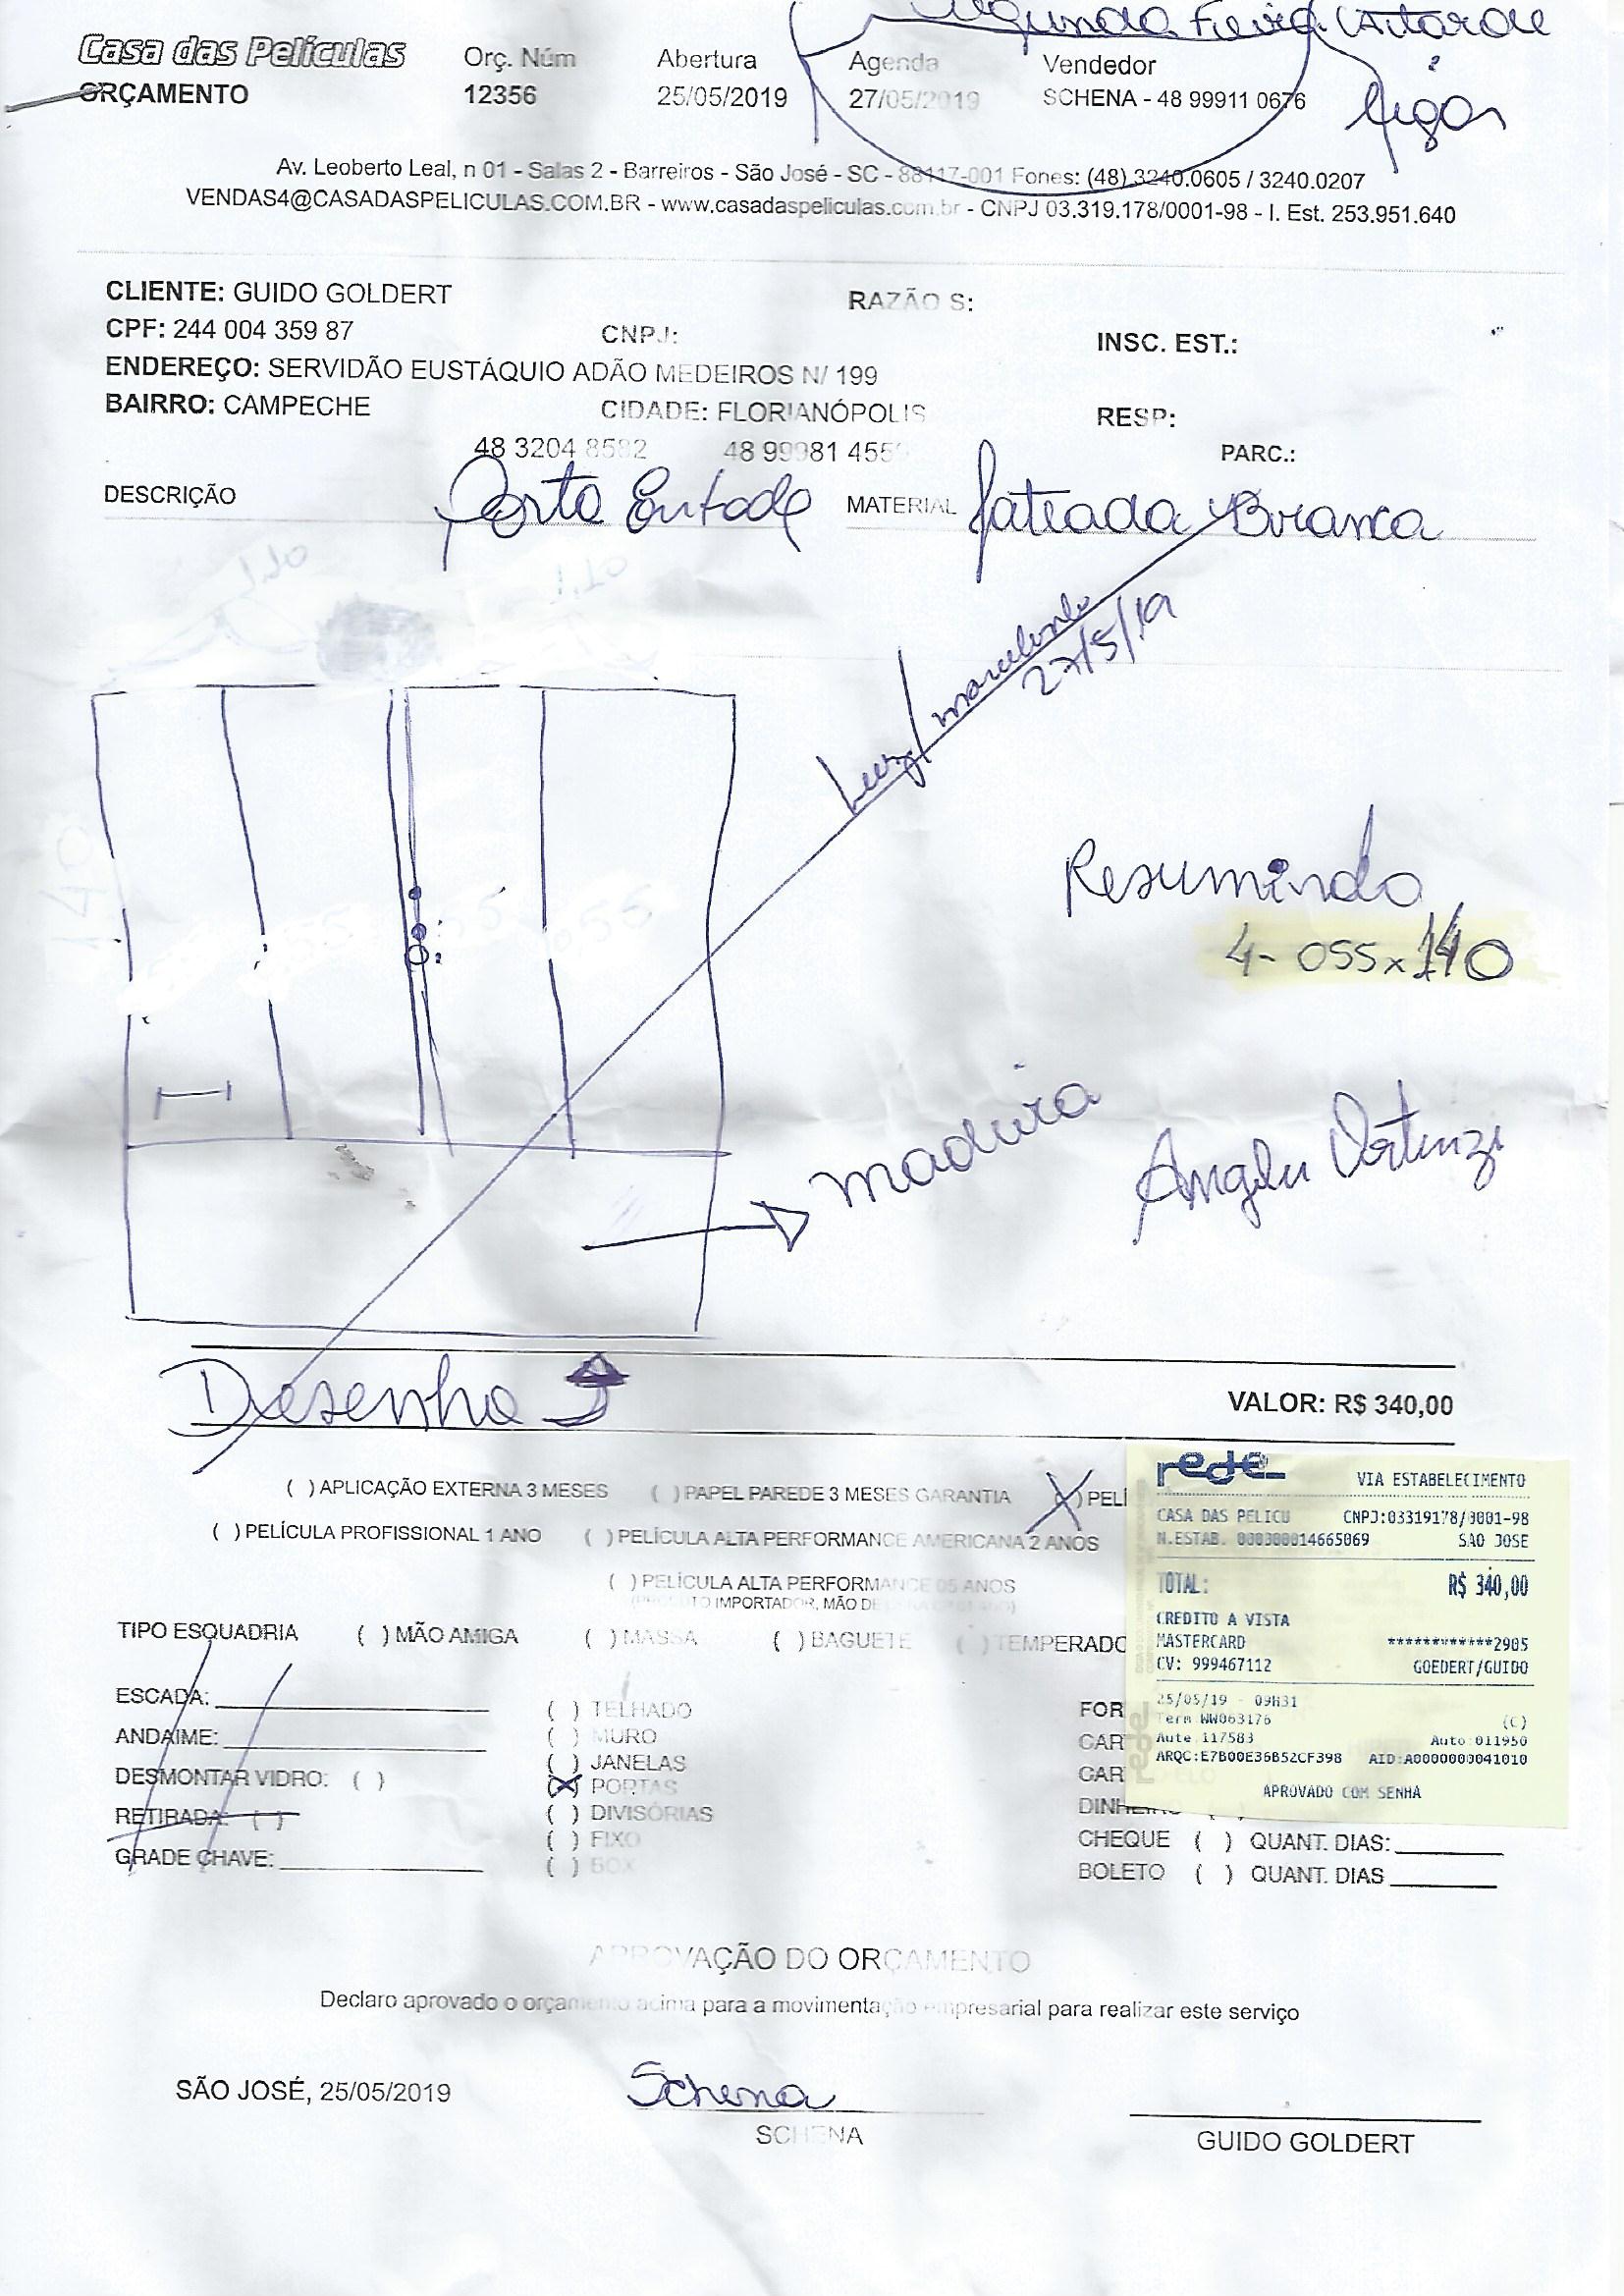 Segunda Feira (Atarde
Casa das Películas
Orç. Núm Abertura Agenda Vendedor
ORÇAMENTO 12356 25/05/2019 27/05/2019 SCHENA - 48 99911 0676
Av. Leoberto Leal, n 01 - Salas 2 - Barreiros - São José - SC - 88117-001 Fones: (48) 3240.0605 / 3240.0207
VENDAS4@CASADASPELICULAS.COM.BR - www.casadaspeliculas.com.br - CNPJ 03.319.178/0001-98 - I. Est. 253.951.640
CLIENTE: GUIDO GOLDERT RAZÃO S:
CPF: 244 004 359 87 CNPJ: INSC. EST.:
ENDEREÇO: SERVIDÃO EUSTÁQUIO ADÃO MEDEIROS N/ 199
BAIRRO: CAMPECHE CIDADE: FLORIANÓPOLIS RESP:
48 3204 8582 48 99981 455 PARC.:
DESCRIÇÃO Porta MATERIAL Jateada Branca
27/5/19
Resumindo
4- 055x140
madeira
Desenho
VALOR: R$ 340,00
( ) APLICAÇÃO EXTERNA 3 MESES ( ) PAPEL PAREDE 3 MESES GARANTIA (X) PELÍ
( ) PELÍCULA PROFISSIONAL 1 ANO ( ) PELÍCULA ALTA PERFORMANCE AMERICANA 2 ANOS
( ) PELÍCULA ALTA PERFORMANCE 05 ANOS
IMPORTADOR, MÃO DE
TIPO ESQUADRIA ( ) MÃO AMIGA ( ) MASSA ( ) BAGUETE ( ) TEMPERADO
ESCADA: ( ) TELHADO FOR
ANDAIME: ( ) MURO CAR
( ) JANELAS
DESMONTAR VIDRO: ( ) (X) PORTAS CAR
RETIRADA: ( ) ( ) DIVISÓRIAS DINHEIRO
( ) FIXO CHEQUE ( ) QUANT. DIAS:
GRADE CHAVE: ( ) BOX BOLETO ( ) QUANT. DIAS
rede
VIA ESTABELECIMENTO
CASA DAS PELICU CNPJ:03319178/0001-98
N.ESTAB. 000300014665069 SAO JOSE
TOTAL: R$ 340,00
CREDITO A VISTA
MASTERCARD ************2905
CV: 999467112 GOEDERT/GUIDO
25/05/19 - 09H31
Term WW063176 (C)
Aute 117583 Auto:011950
ARQC:E7B00E36B52CF398 AID:A0000000041010
APROVADO COM SENHA
APROVAÇÃO DO ORÇAMENTO
Declaro aprovado o orçamento acima para a movimentação empresarial para realizar este serviço
SÃO JOSÉ, 25/05/2019 Schena
SCHENA GUIDO GOLDERT